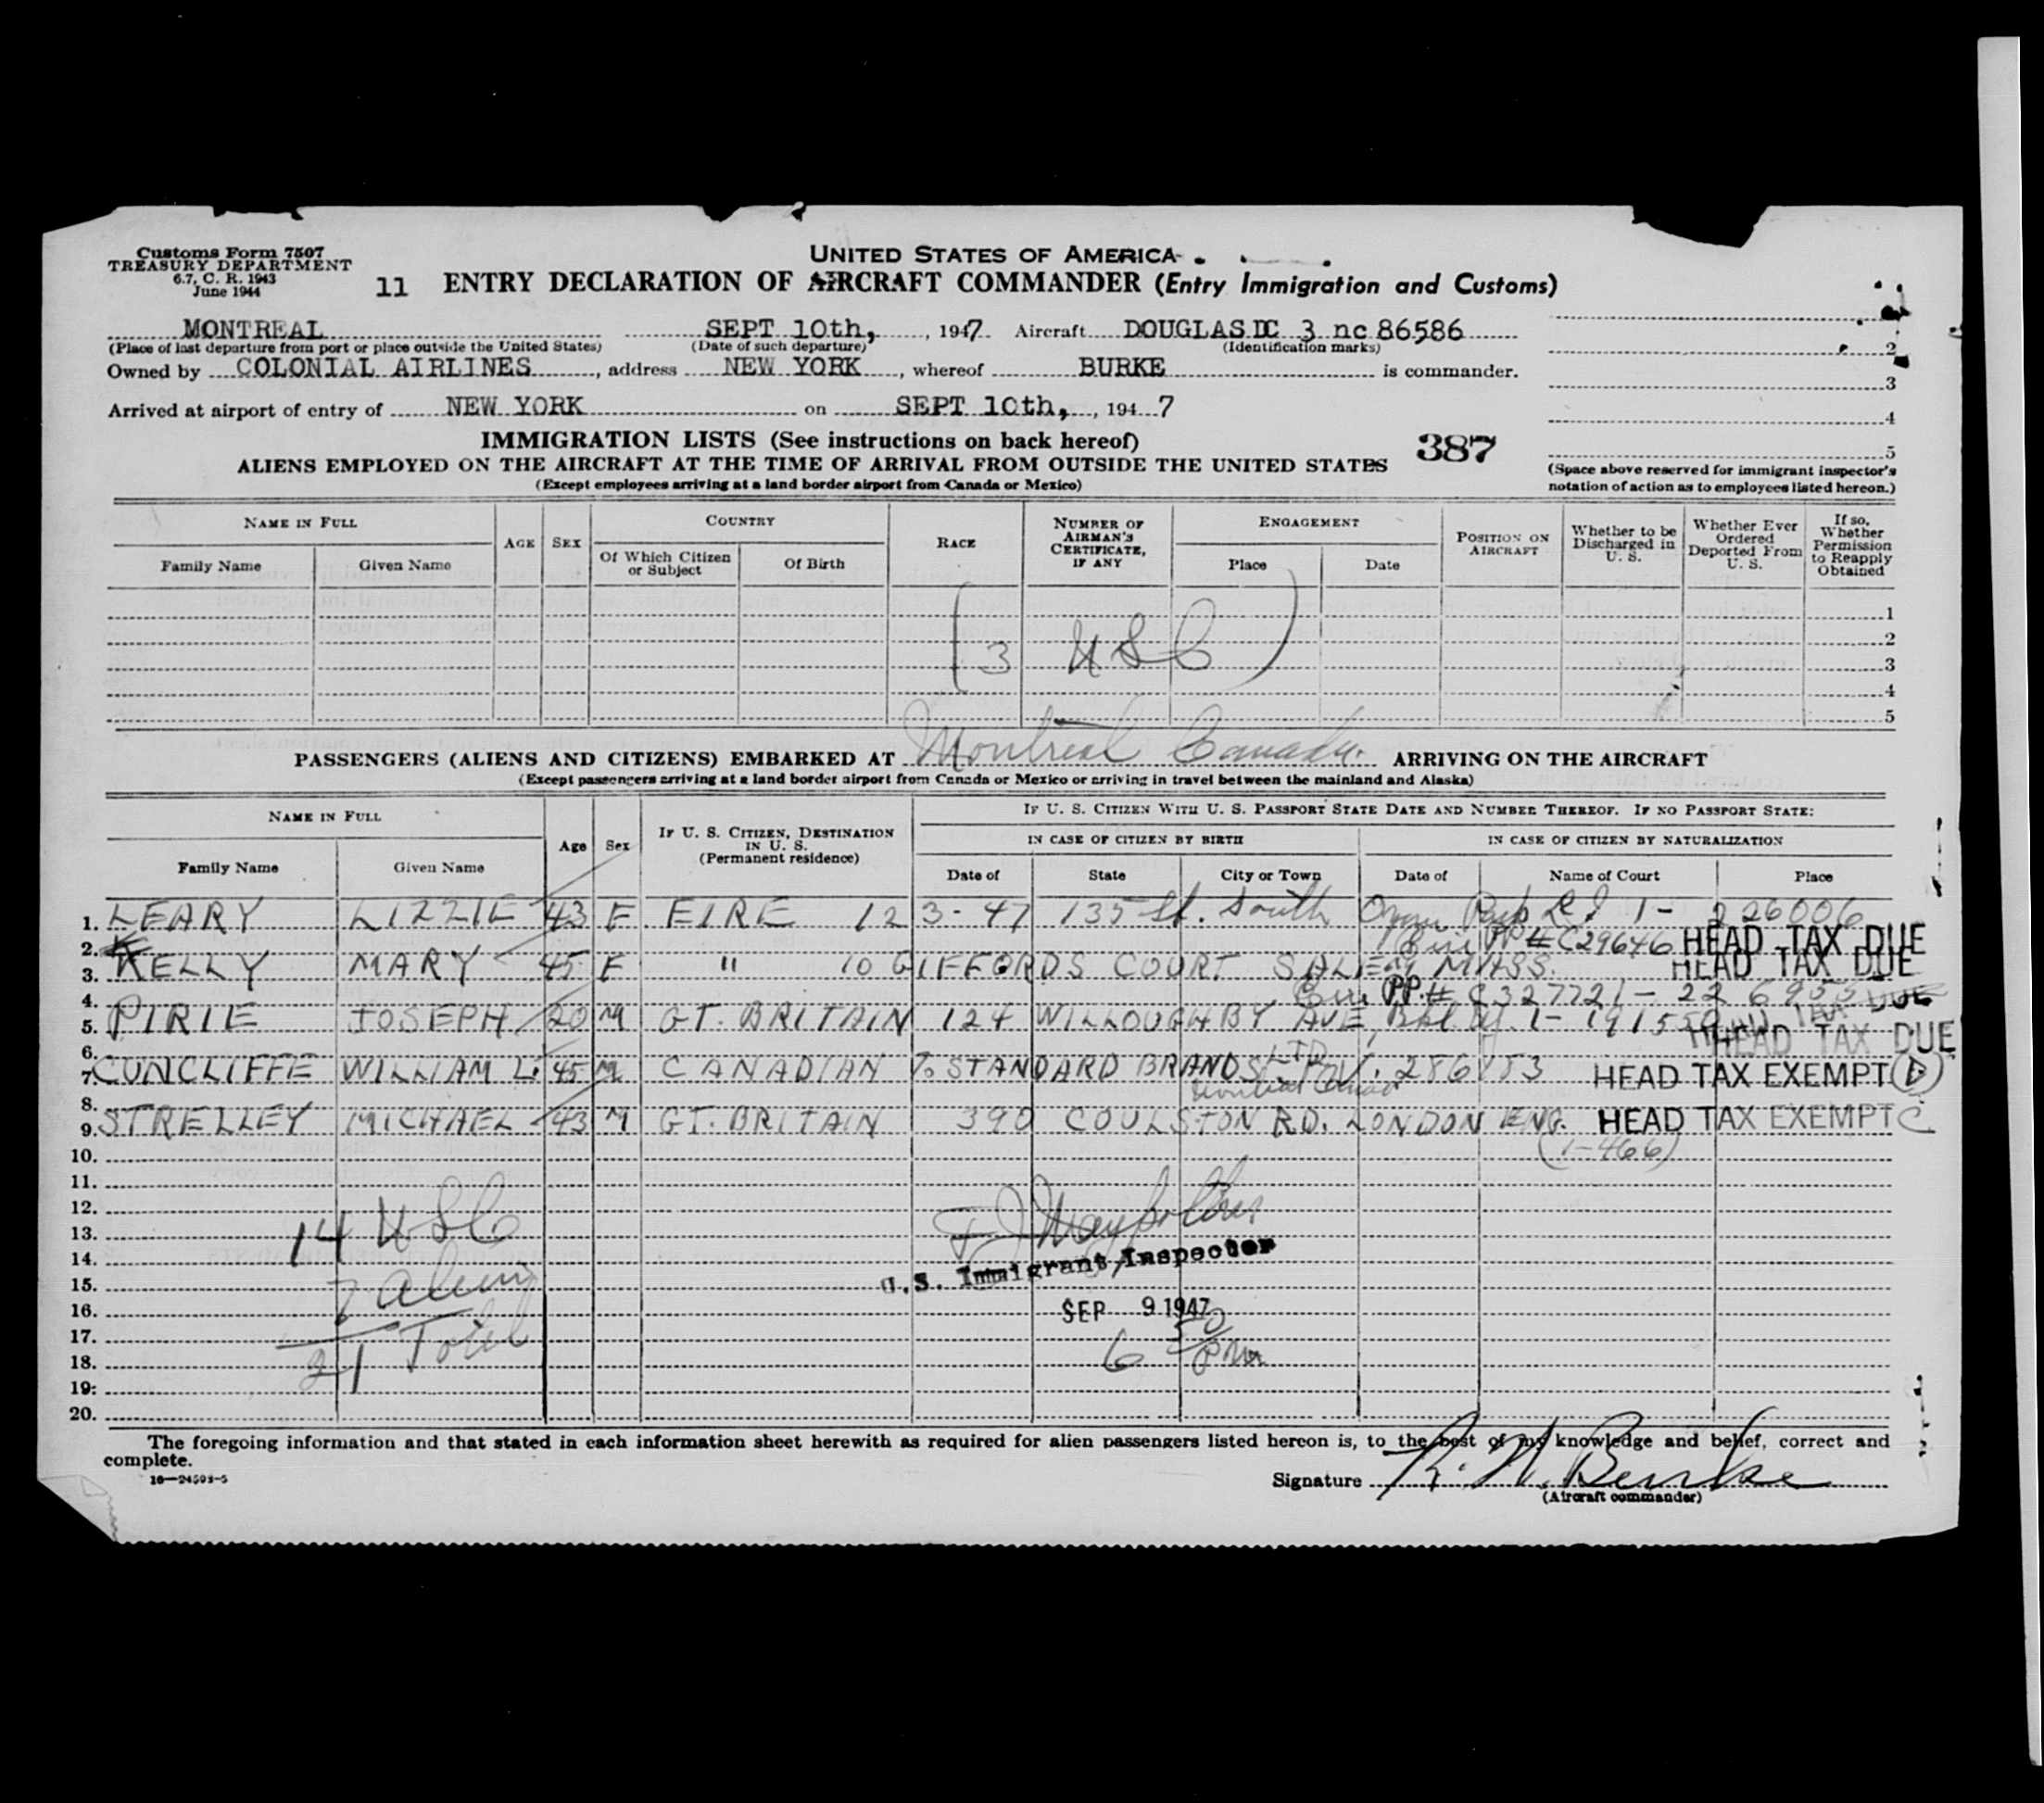 Customs Form 7507
TREASURY DEPARTMENT
6.7, C. R. 1943
June 1944
UNITED STATES OF AMERICA
11 ENTRY DECLARATION OF AIRCRAFT COMMANDER (Entry Immigration and Customs)
MONTREAL SEPT 10th, , 1947 Aircraft DOUGLAS DC 3 nc 86586
(Place of last departure from port or place outside the United States) (Date of such departure) (Identification marks)
2
Owned by COLONIAL AIRLINES , address NEW YORK , whereof BURKE is commander.
3
Arrived at airport of entry of NEW YORK on SEPT 10th, , 194 7
4
IMMIGRATION LISTS (See instructions on back hereof) 387
5
ALIENS EMPLOYED ON THE AIRCRAFT AT THE TIME OF ARRIVAL FROM OUTSIDE THE UNITED STATES
(Except employees arriving at a land border airport from Canada or Mexico)
(Space above reserved for immigrant inspector's
notation of action as to employees listed hereon.)
NAME IN FULL
Family Name
Given Name
AGE
SEX
COUNTRY
Of Which Citizen
or Subject
Of Birth
RACE
NUMBER OF
AIRMAN'S
CERTIFICATE,
IF ANY
ENGAGEMENT
Place
Date
POSITION ON
AIRCRAFT
Whether to be
Discharged in
U. S.
Whether Ever
Ordered
Deported From
U. S.
If so,
Whether
Permission
to Reapply
Obtained
1
2
3
4
5
(3 USC)
PASSENGERS (ALIENS AND CITIZENS) EMBARKED AT Montreal Canada. ARRIVING ON THE AIRCRAFT
(Except passengers arriving at a land border airport from Canada or Mexico or arriving in travel between the mainland and Alaska)
NAME IN FULL
Family Name
Given Name
Age
Sex
IF U. S. CITIZEN, DESTINATION
IN U. S.
(Permanent residence)
IF U. S. CITIZEN WITH U. S. PASSPORT STATE DATE AND NUMBER THEREOF. IF NO PASSPORT STATE:
IN CASE OF CITIZEN BY BIRTH
IN CASE OF CITIZEN BY NATURALIZATION
Date of
State
City or Town
Date of
Name of Court
Place
1. LEARY LIZZIE 43 F EIRE 123-47 135 St. South 1- 226006
2. PP # C29646 HEAD TAX DUE
3. KELLY MARY 45 F " 10 GIFFORDS COURT SALEM MASS. HEAD TAX DUE
4. PP. # C327721-
5. PIRIE JOSEPH 20 M GT. BRITAIN 124 WILLOUGHBY AVE,
6. LTD HEAD TAX DUE
7. CUNCLIFFE WILLIAM L. 45 M CANADIAN % STANDARD BRANDS HEAD TAX EXEMPT D
8.
9. STRELLEY MICHAEL 43 M GT. BRITAIN 390 COULSTON RD. LONDON ENG. HEAD TAX EXEMPT C
10. (1-466)
11.
12.
13. 14 USC
14. U.S. Immigrant Inspector
15. 7 Aliens
16. SEP 9 1947
17. 21 Total
18. 6 50 PM
19.
20.
The foregoing information and that stated in each information sheet herewith as required for alien passengers listed hereon is, to the best of my knowledge and belief, correct and
complete.
16—24593-5
Signature R. N. Burke
(Aircraft commander)